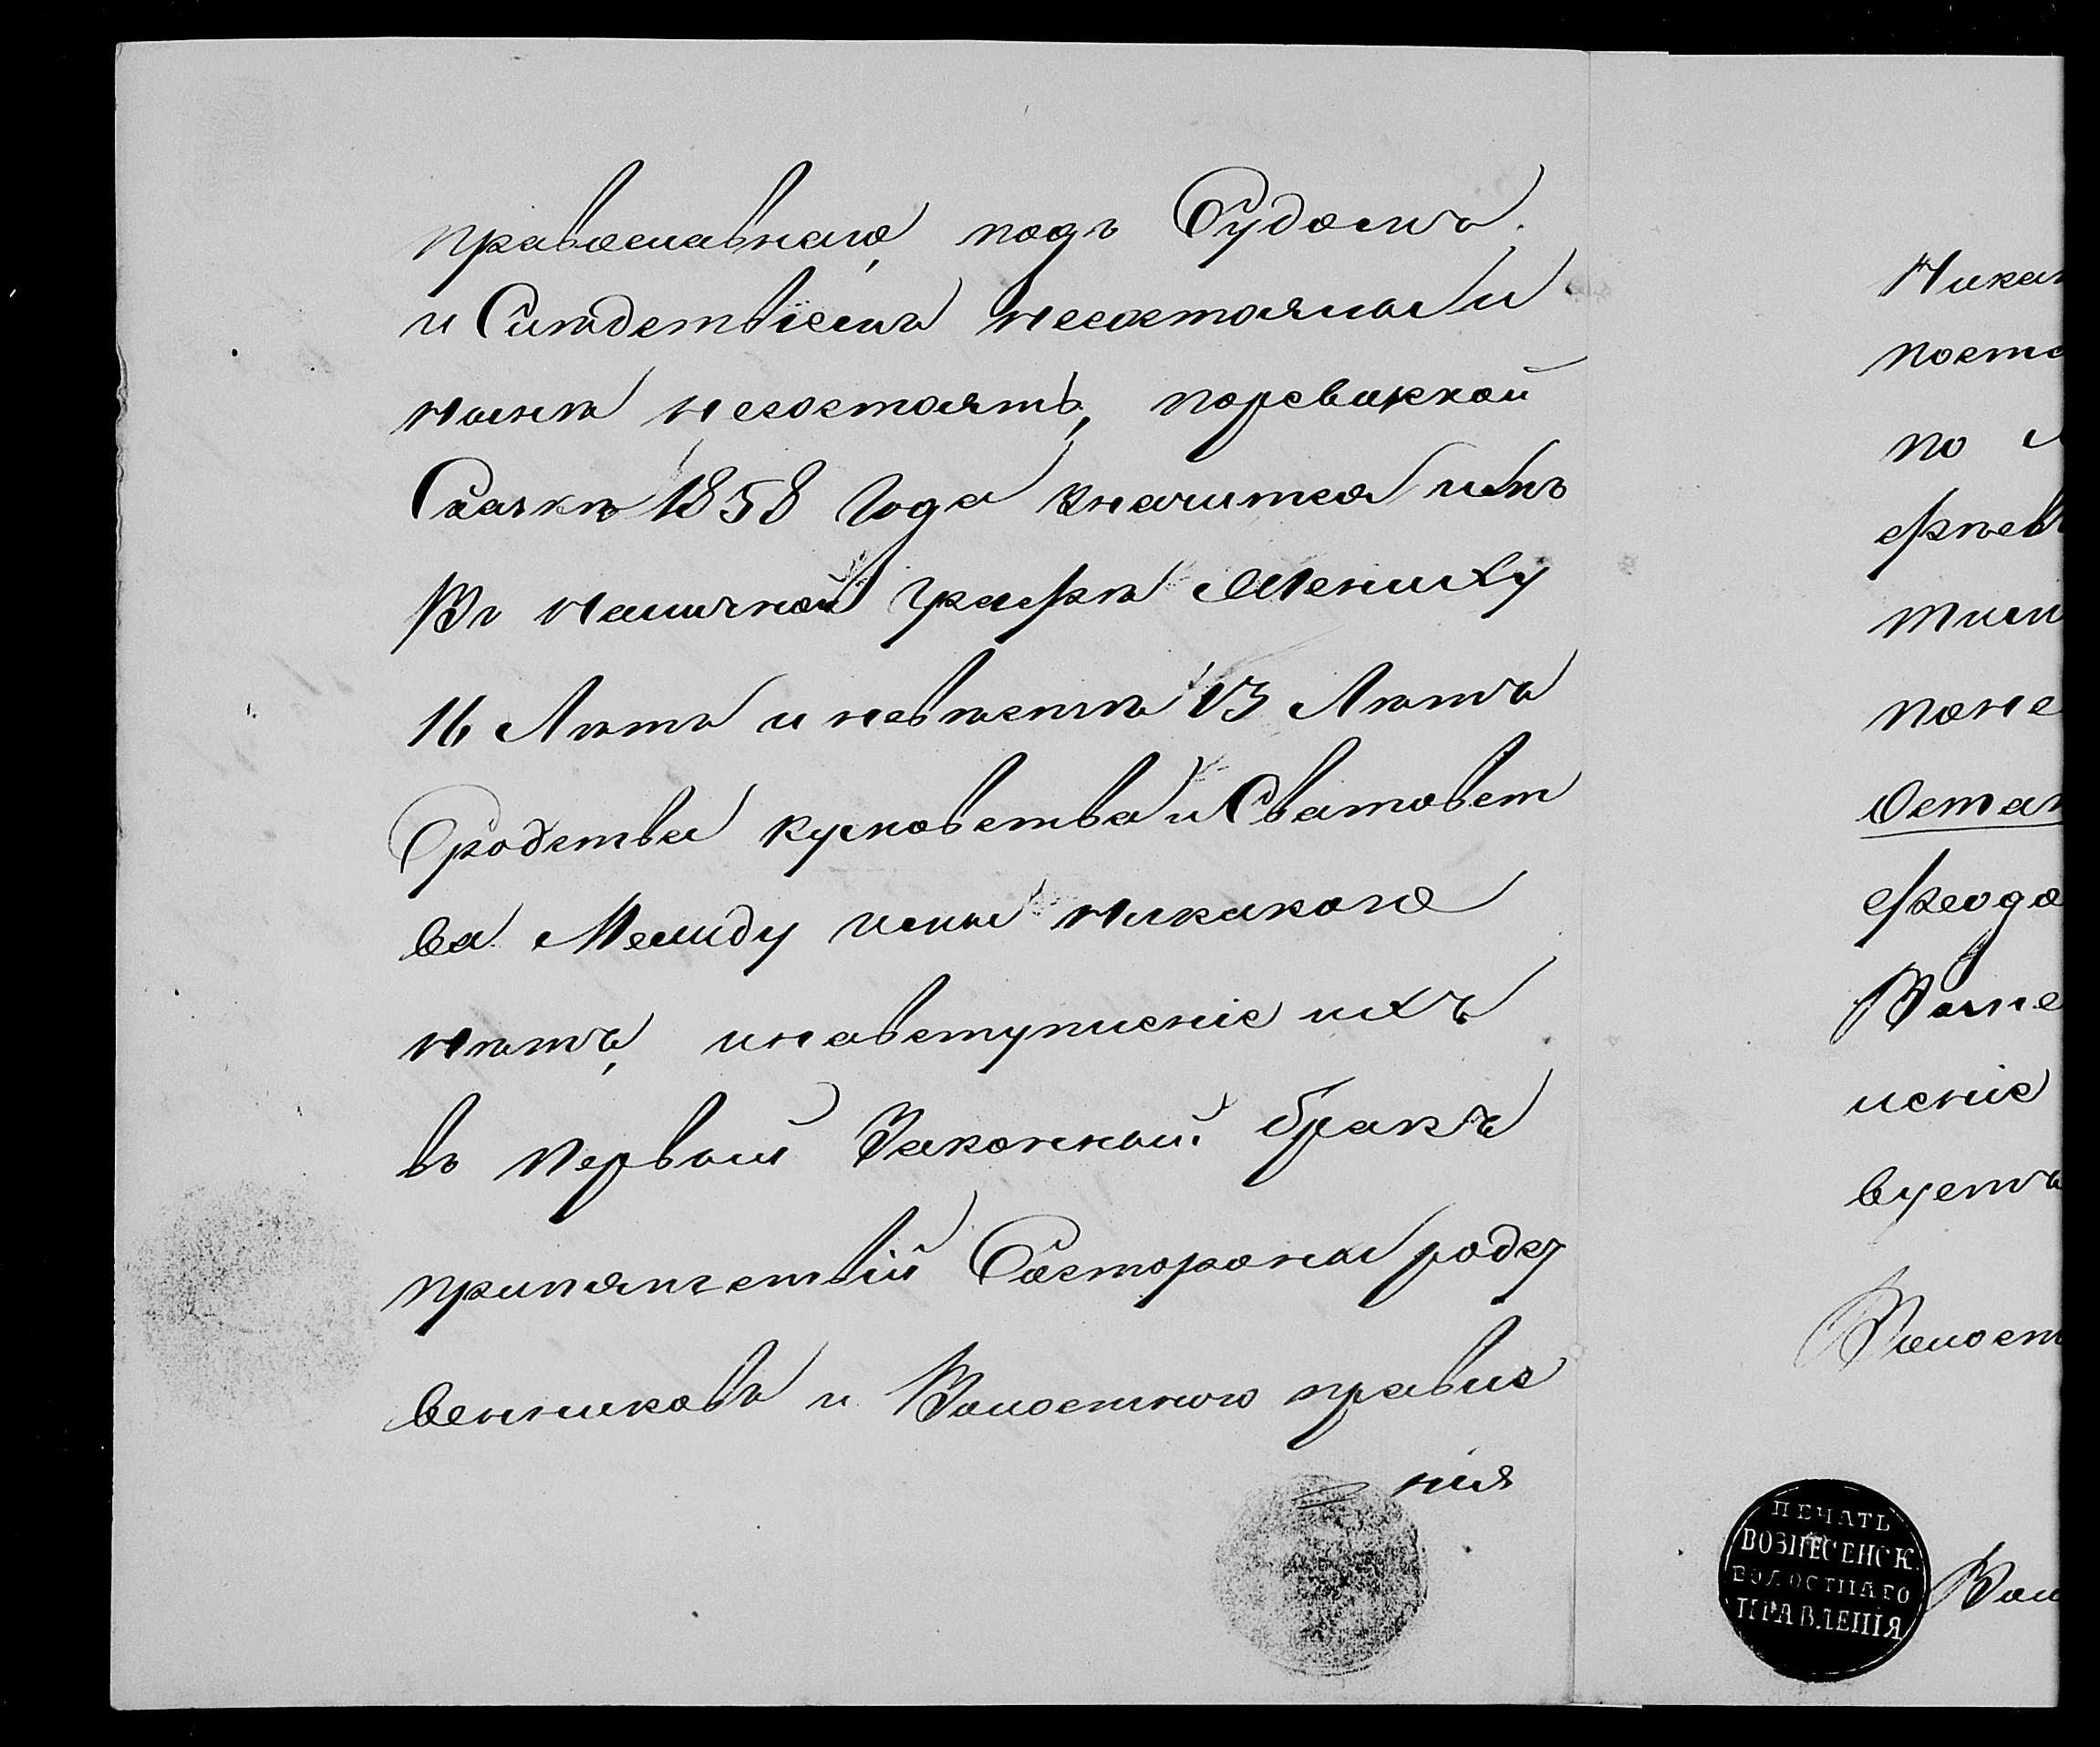 православнаго, подъ Судомъ
и Слѣдствіемъ несостояли и
нынѣ несостоятъ, поревизкой
Сказкѣ 1858 Года значится имъ
Въ наличной графѣ Жениху
16 Лѣтъ и невѣстѣ 13 Лѣтъ
Сродства кумовства и Сватовст
ва Между ими никакого
нѣтъ, инавступленіе ихъ
въ первый Законный бракъ
припятствій Состороны родст
венниковъ и Волостного правле
нія
Никак
поста
по
тим
поне
Остан
Феодо
Возне
леніе
вуетъ
Волост
ПЕЧАТЬ
ВОЗНЕСЕНСК.
ВОЛОСТНАГО
ПРАВЛЕНІЯ
Вол